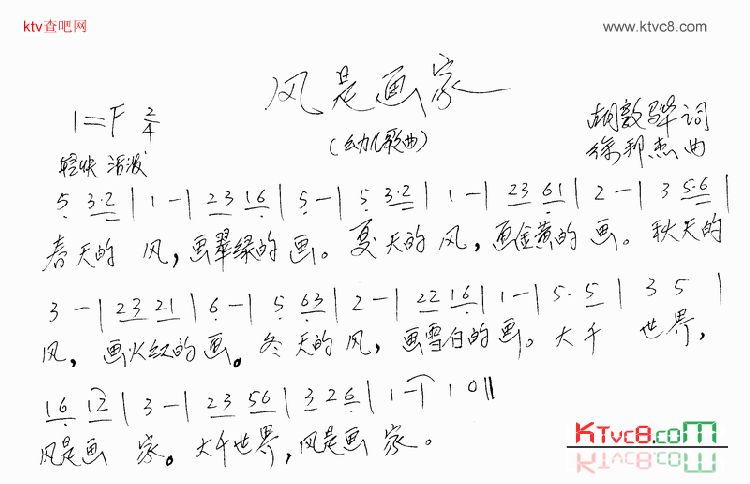 ktv查吧网
www.ktvc8.com
风是画家
(幼儿歌曲)
1=F 2/4
轻快 活泼
胡敦骅词
徐邦杰曲
5 3·2 | 1 - | 23 16 | 5 - | 5 3·2 | 1 - | 23 61 | 2 - | 3 5·6 |
春天的 风，画翠绿的画。夏天的风，画金黄的画。秋天的
3 - | 23 21 | 6 - | 5 63 | 2 - | 22 16 | 1 - | 5· 5 | 3 5 |
风，画火红的画。冬天的风，画雪白的画。大千 世界，
16 12 | 3 - | 23 56 | 3 26 | 1 - | 1 0 ||
风是画 家。大千世界，风是画 家。
KTvc8.com